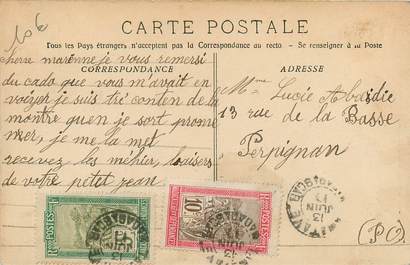 10€
CARTE POSTALE
Tous les Pays étrangers n'acceptent pas la Correspondance au recto - Se renseigner à la Poste
CORRESPONDANCE
chere marenne je vous remersi
du cado que vous m'avait en
voiyér je suis tré conten de la
montre quen je sort prome
mer, je me la met
recevez les méhieu, baisers
de votre petet jean
ADRESSE
Mme Lucie Abadie
13 rue de la Basse
Perpignan
(P.O)
10
13
JUIN